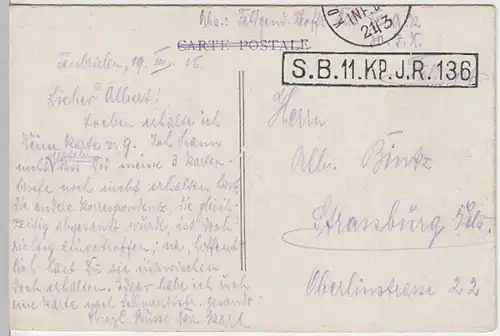 CARTE POSTALE
S.B. 11. KP. J. R. 136
19. III. 15.
Lieber Albert!
Soeben erhalte ich
Deine Karte v. 9. Ich kann
nicht Du meine 3 Karten-
briefe noch nicht erhalten hast,
die andere Korrespondenz, die gleich-
zeitig abgesandt wurde, ist doch
richtig eingetroffen, na, hoffent-
lich hast Du sie inzwischen
doch erhalten. Edgar habe ich auch
eine Karte nach gesandt
Herzl. Grüsse Karl
Herrn
Alb. Bintz
Strassburg Els.
Oberlinstrasse 22